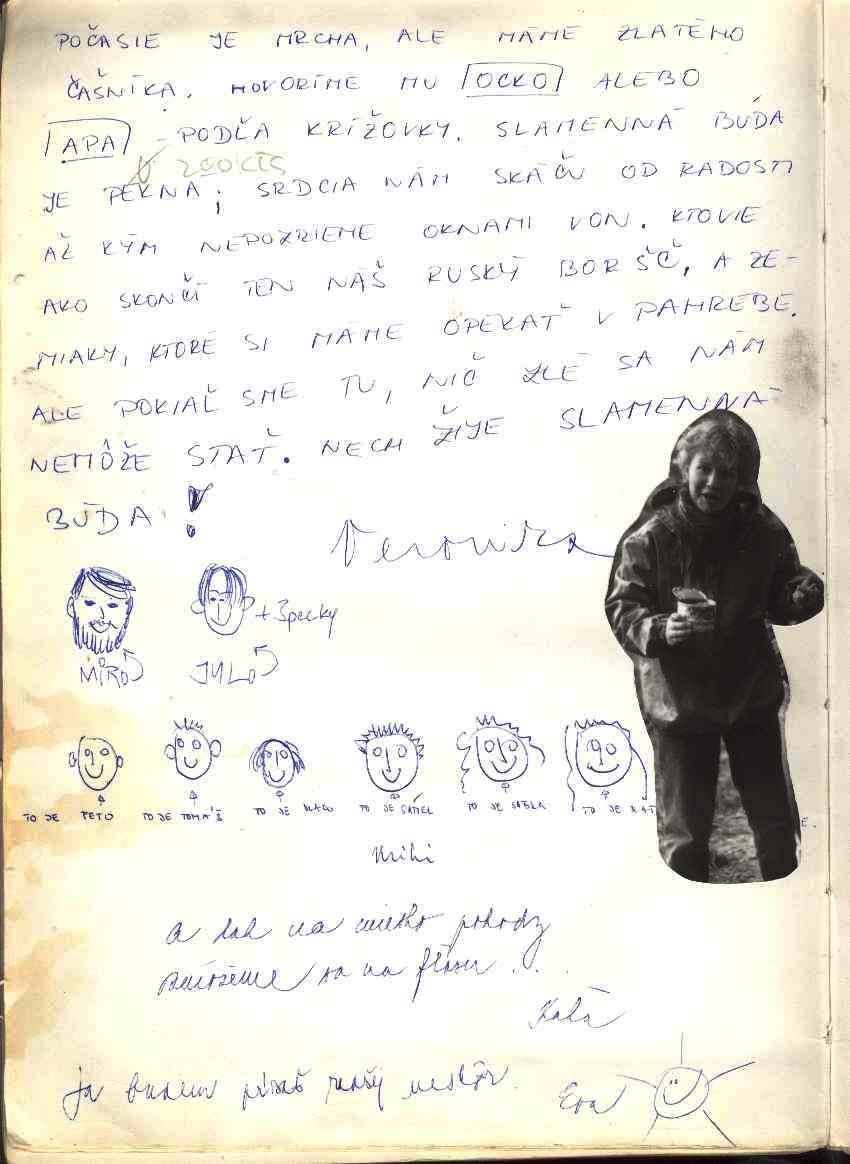 POČASIE JE MRCHA, ALE MÁME ZLATÉHO
ČAŠNÍKA. HOVORÍME MU OCKO ALEBO
APA - PODĽA KRÍŽOVKY. SLAMENNÁ BÚDA
JE PEKNÁ; SRDCIA NÁM SKÁČU OD RADOSTI
AŽ KÝM NEPOZRIEME OKNAMI VON. KTOVIE
AKO SKONČÍ TEN NÁŠ RUSKÝ BORŠČ, A ZE-
MIAKY, KTORÉ SI MÁME OPEKAŤ V PAHREBE.
ALE POKIAĽ SME TU, NIČ ZLÉ SA NÁM
NEMÔŽE STAŤ. NECH ŽIJE SLAMENNÁ
BÚDA!
Veronika
+ Špecky
MIRO JULO
TO JE PEŤO TO JE TOMÁŠ TO JE VLADO TO JE TO JE TO JE
A tak na
sa na
Kaťa
Ja budem písať
Eva